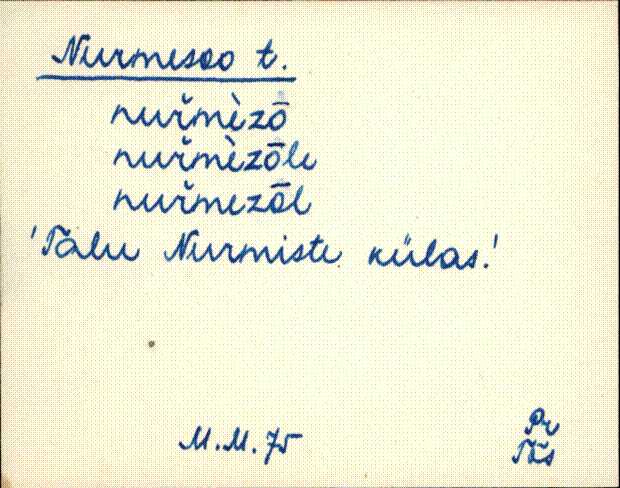 Nurmesoo t.
nuřmèzō
nuřmèzōlɛ
nuřmezōl
'Talu Nurmiste külas.'
M.M.75
Pr
Tõs